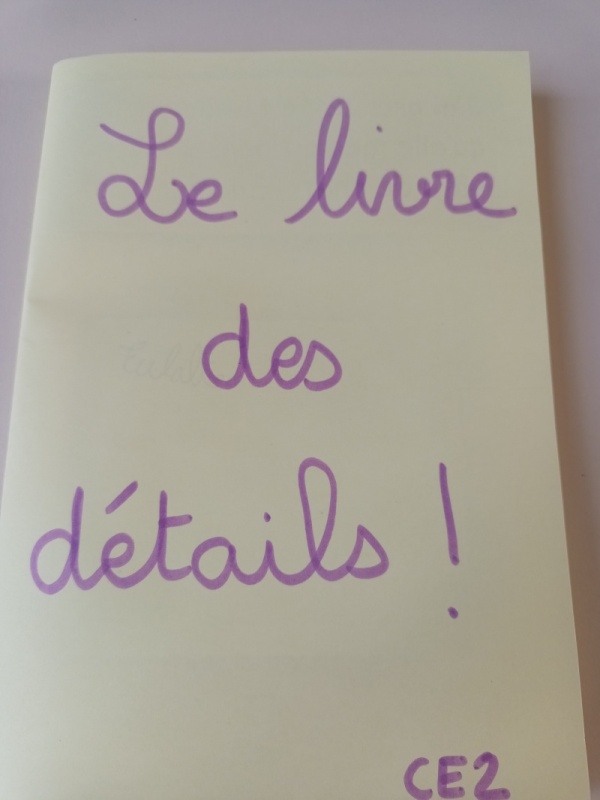 Le livre
des
détails !
CE2